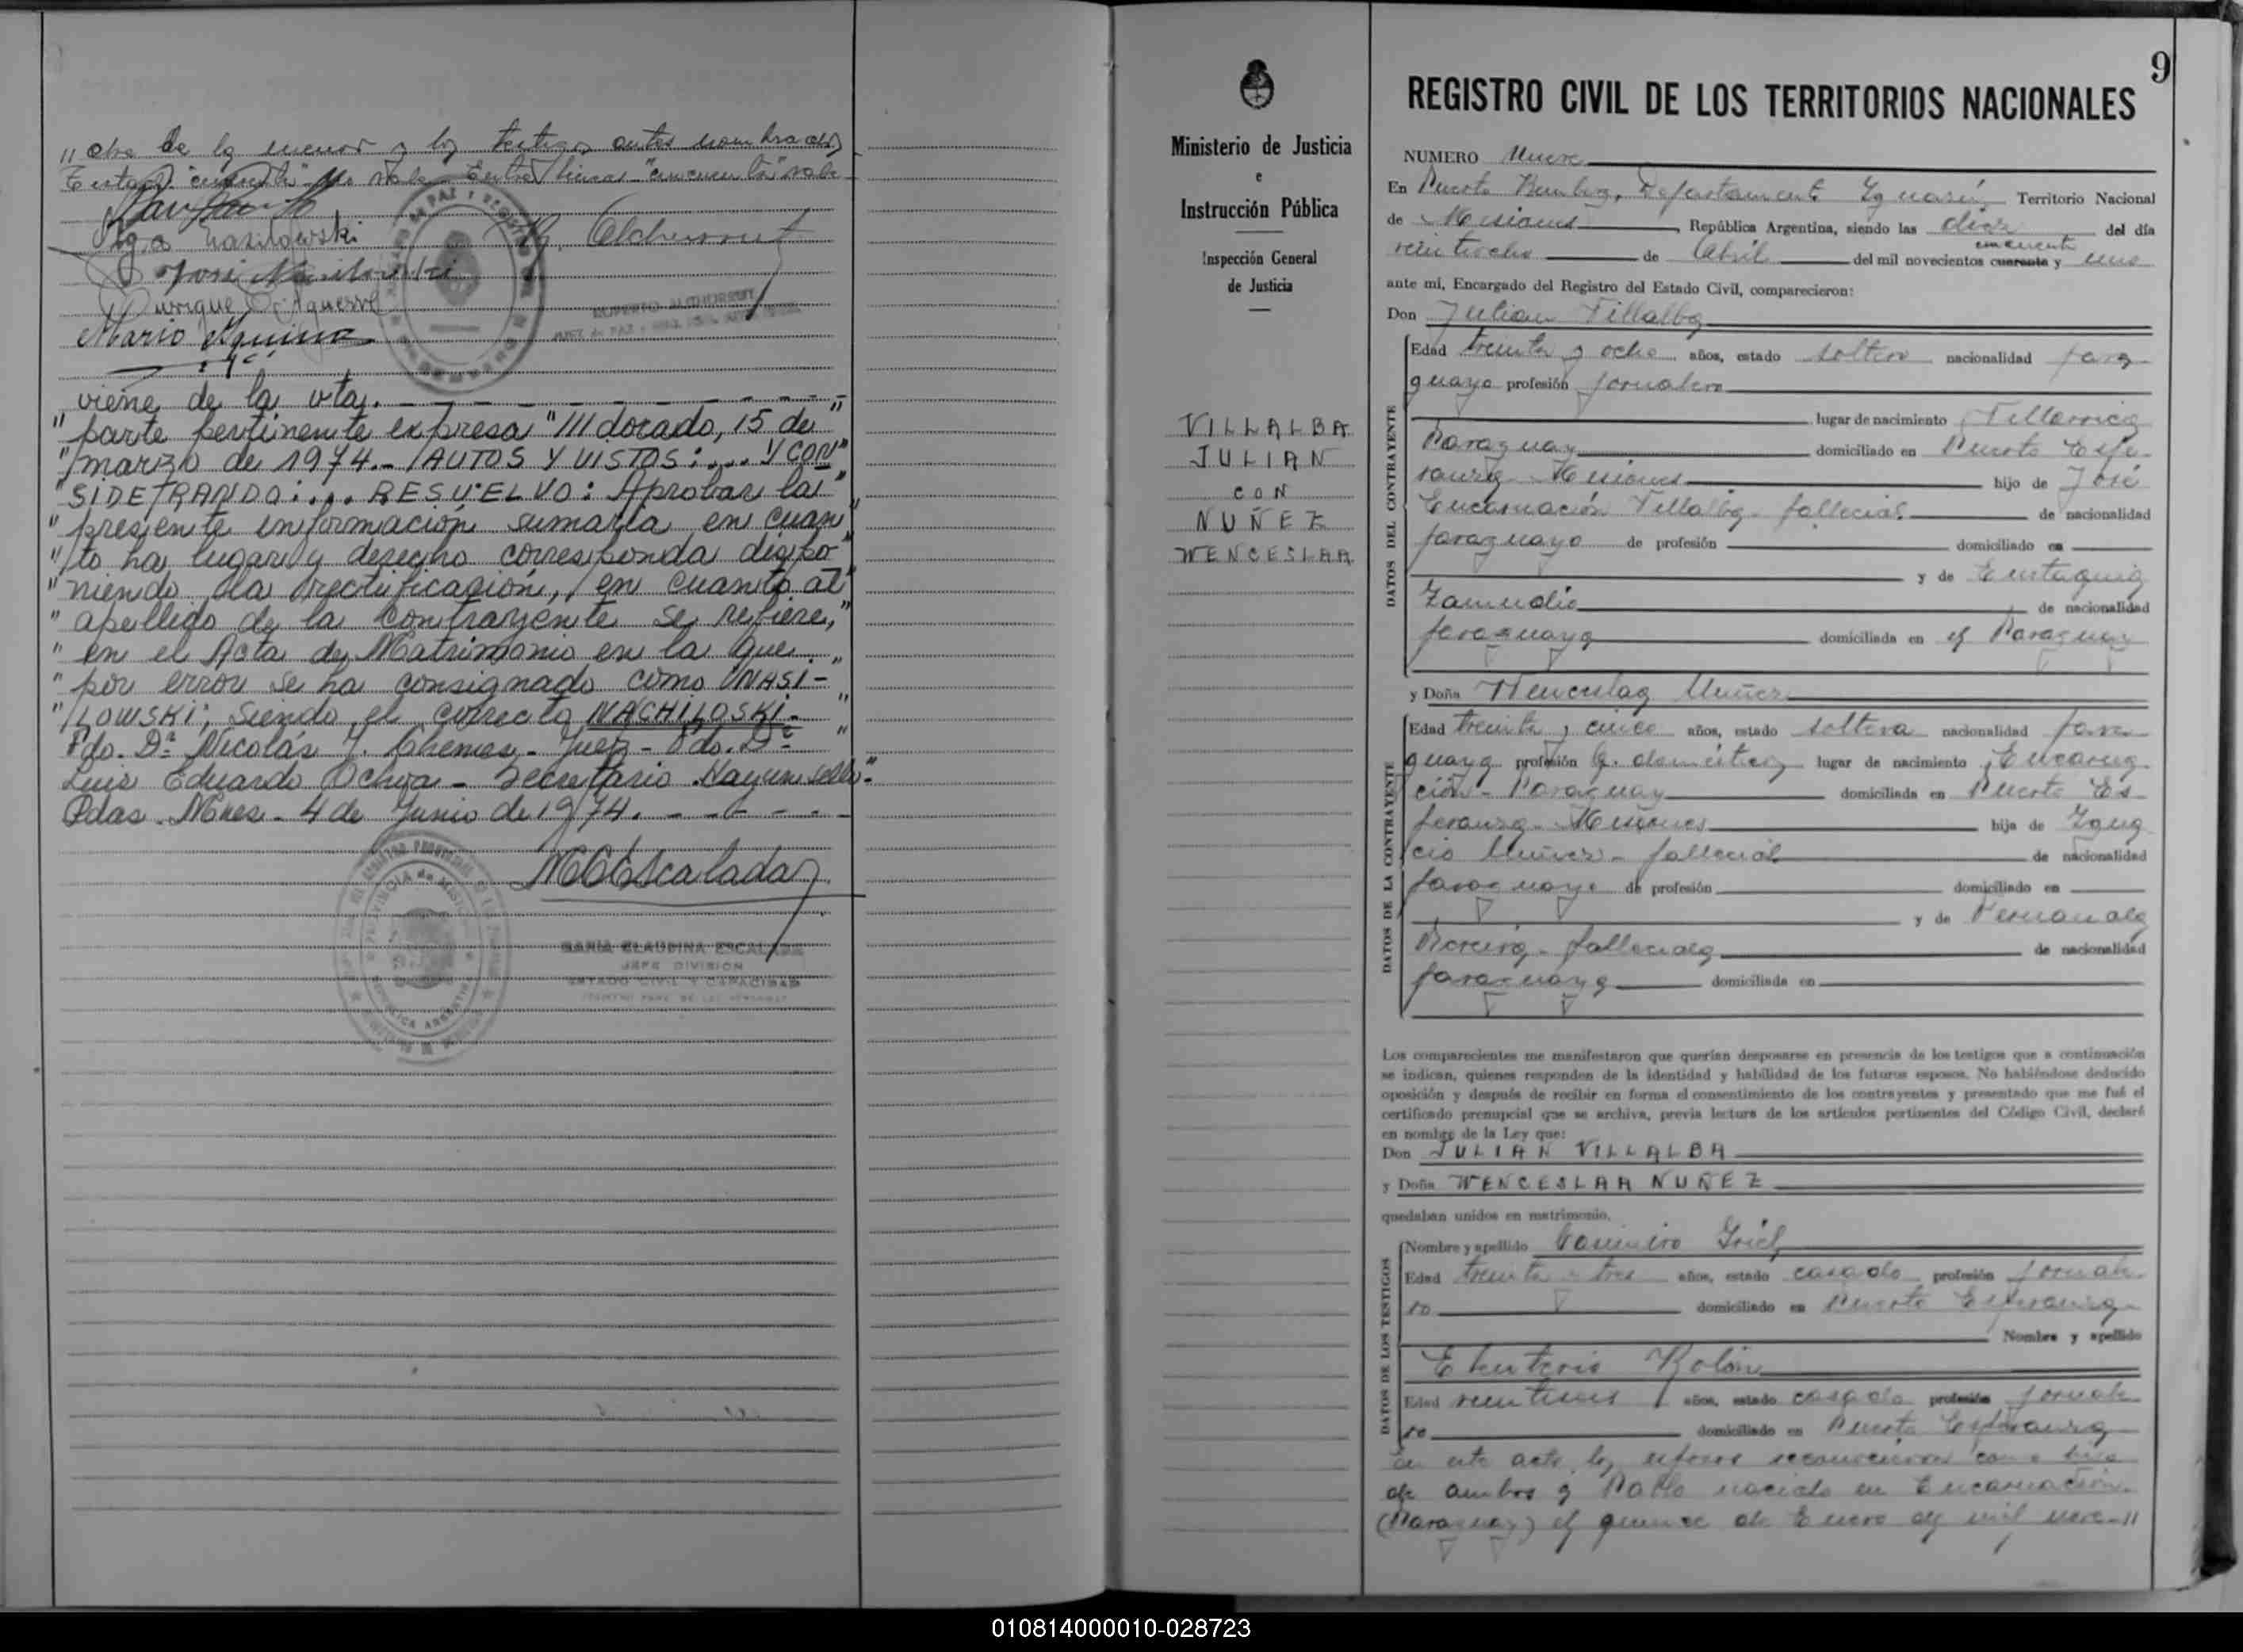 "dre de la menor y los testigos antes nombrados
Testado "cuarenta" No vale. Entre líneas "cincuenta" vale
José Wasilowski
Enrique Aguerre
Mario Aquino
viene de la vta. - - - - - -
"parte pertinente expresa "Eldorado, 15 de"
"marzo de 1974.- AUTOS Y VISTOS:... Y CON"
"SIDERANDO:... RESUELVO: Aprobar la"
"presente información sumaria en cuan"
"to ha lugar y derecho corresponda dispo"
"niendo la rectificación, en cuanto al"
"apellido de la contrayente se refiere,"
"en el Acta de Matrimonio en la que"
"por error se ha consignado como WASI-"
"LOWSKI; siendo el correcto WACHILOSKI.-"
Fdo. Dr. Nicolás Juez - Fdo. Dr.
Luis Eduardo Ochoa - Secretario. Hay un sello"
Pdas. Mnes. 4 de Junio de 1974. - - - -
MCEscalada
MARIA CLAUDINA ESCALADA
JEFE DIVISION
ESTADO CIVIL Y CAPACIDAD
9
REGISTRO CIVIL DE LOS TERRITORIOS NACIONALES
Ministerio de Justicia
e
Instrucción Pública
Inspección General
de Justicia
VILLALBA
JULIAN
CON
NUÑEZ
WENCESLAA
NUMERO Nueve
En Puerto Bemberg, Departamento Iguazú, Territorio Nacional
de Misiones, República Argentina, siendo las diez del día
cincuenta
veintiocho de Abril del mil novecientos cuarenta y uno
ante mí, Encargado del Registro del Estado Civil, comparecieron:
Don Julian Villalba
DATOS DEL CONTRAYENTE
Edad treinta y ocho años, estado soltero nacionalidad para
guaya profesión jornalero
lugar de nacimiento Villarrica
Paraguay domiciliado en Puerto Espe
ranza - Misiones hijo de José
Encarnación Villalba - fallecido de nacionalidad
paraguayo de profesión domiciliado en
y de Eustaquia
Zamudio de nacionalidad
paraguaya domiciliada en el Paraguay
y Doña Wenceslaa Nuñez
DATOS DE LA CONTRAYENTE
Edad treinta y cinco años, estado soltera nacionalidad para
guaya profesión q. domésticos lugar de nacimiento Encarna
ción - Paraguay domiciliada en Puerto Es
peranza - Misiones hija de Igna
cio Nuñez - fallecido de nacionalidad
paraguayo de profesión domiciliado en
y de Fernanda
fallecida de nacionalidad
paraguaya domiciliada en
Los comparecientes me manifestaron que querían desposarse en presencia de los testigos que a continuación
se indican, quienes responden de la identidad y habilidad de los futuros esposos. No habiéndose deducido
oposición y después de recibir en forma el consentimiento de los contrayentes y presentado que me fué el
certificado prenupcial que se archiva, previa lectura de los artículos pertinentes del Código Civil, declaré
en nombre de la Ley que:
Don JULIAN VILLALBA
y Doña WENCESLAA NUÑEZ
quedaban unidos en matrimonio.
DATOS DE LOS TESTIGOS
Nombre y apellido Casimiro
Edad treinta y tres años, estado casado profesión jornale
ro domiciliado en Puerto Esperanza
Nombre y apellido
Eleuterio Rolón
Edad veintiseis años, estado casado profesión jornale
ro domiciliado en Puerto Esperanza
En este acto los esposos reconocieron como hijo
de ambos a Pablo nacido en Encarnación
(Paraguay) el quince de Enero de mil nove-"
010814000010-028723